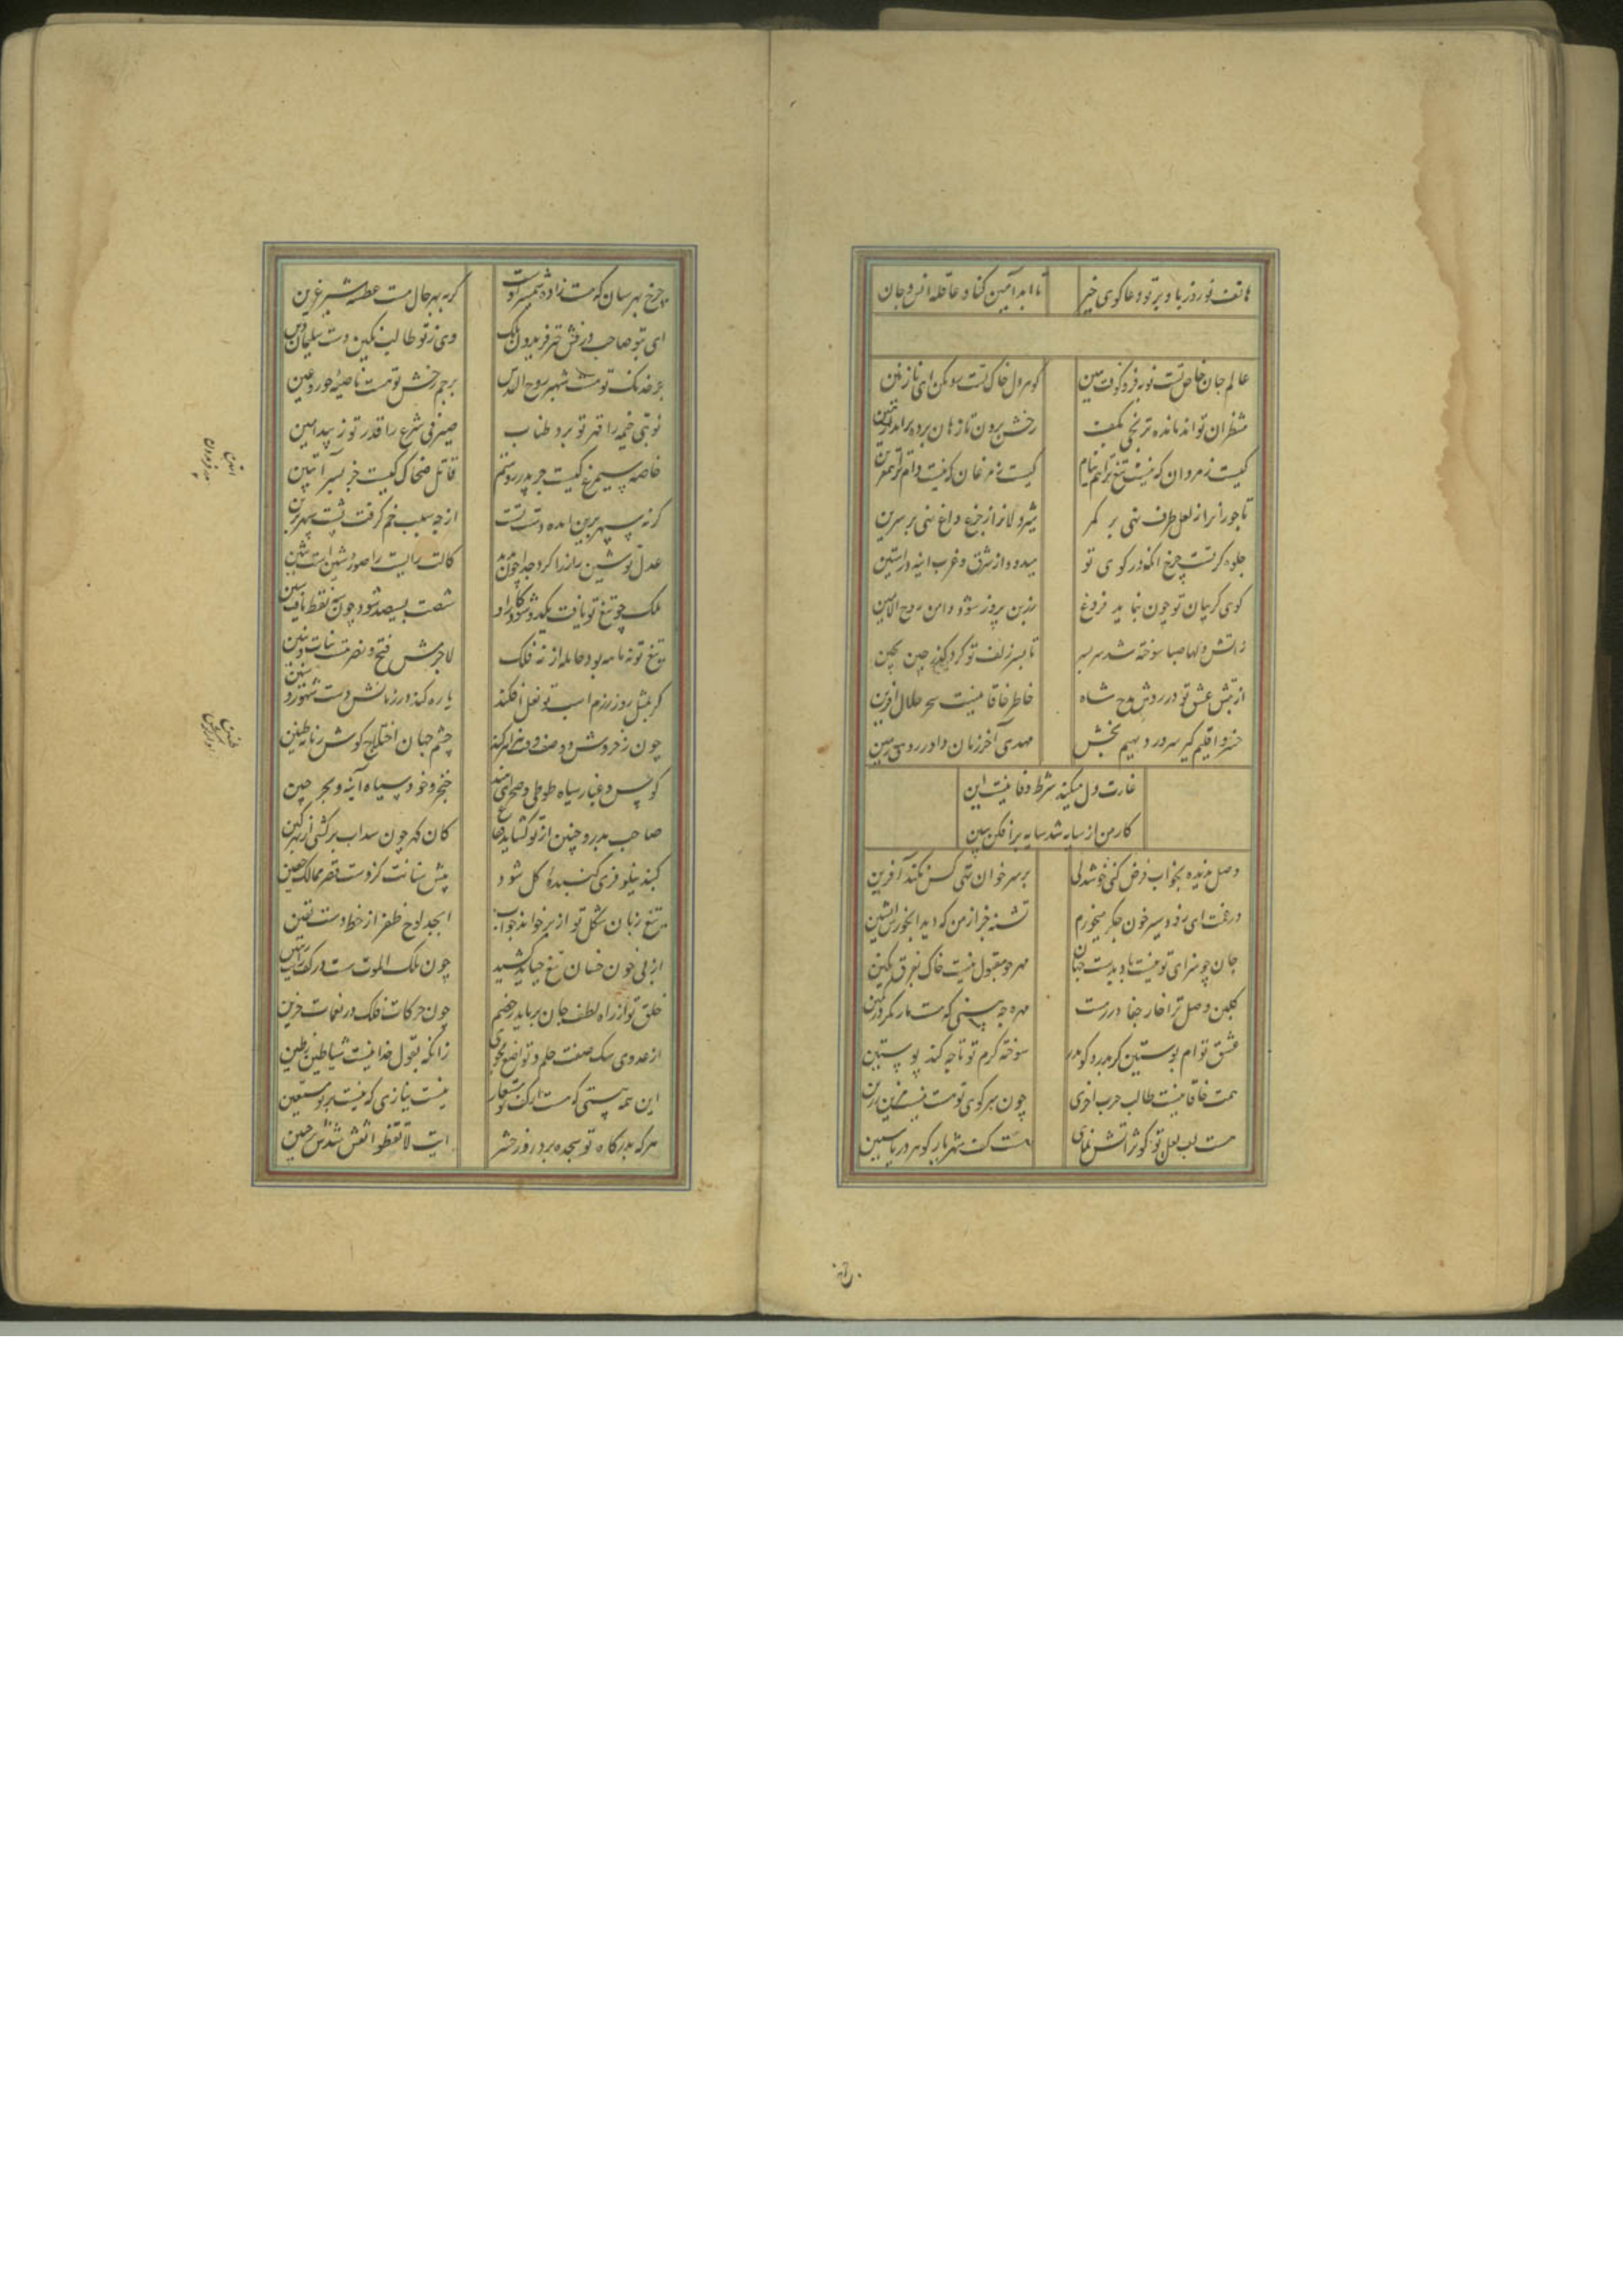 هاتف نوروز باد بر تو دعا کوی خیر
تا ابد آمین کناد عاقله انس و جان
عالم جان خاص تست نوبه فرو کوفت هین
کوهر دل خاک تست سومکن ای نازنین
منتظران تواند مانده ترنجی بکف
رخش برون تاز هان پرده برانداز هین
کیست ز مردان که نیست تیغ ترا هم نیام
کیست ز مرغان که نیست دام ترا
تاجوران را ز لعل طرف نهی بر کمر
شیردلان را ز جزع داغ نهی بر سرین
جلوه کر تست چرخ انکه در کوی تو
میدود از شرق و غرب اینه در استین
کوی کریبان تو چون بنماید فروغ
زرین پروز شود دامن روح الامین
زاتش دلها صبا سوخته شد سر بسر
تا بسر زلف تو کرد کذر چین بچین
از تپش عشق تو در روش مدح شاه
خاطر خاقانیست سحر حلال افرین
خسرو اقلیم کیر سرور دیهیم بخش
مهدی آخر زمان داور روی زمین
غارت دل میکنی شرط وفا نیست این
کار من از سایه شد سایه بر افکن ببین
وصل ندیده بخواب فرض کنی خوشدلی
بر سر خوان تهی کس نکند آفرین
در غمت ای زود سیر خون جکر میخورم
تشنه جز از من که دید ابخورش
جان چو سزای تو نیست باد بدست جهان
مهر چو مقبول نیست خاک بفرق نکین
کلبن وصل ترا خار جفا در رهست
مهره چه بینی که هست مار بکمر در کمین
عشق توام پوستین کر بدرد کو بدر
سوخته کرم تو تا چه کند پوستین
همت خاقانیست طالب چرب اخری
چون سر کوی تو هست نیست مزین
هست لب لعل تو کوثر اتش نمای
هست کف شهریار کوهر دریا
چرخ بهر سان که هست زاده شمشیر اوست
کربه بهر حال هست عطسه شیر عرین
ای بتو صاحب درفش چتر فریدون ملک
وی ز تو طالب نکین دست سلیمان دین
بر خدنک تو هست شهپر روح القدس
پرچم رخش تو هست ناصیه حور عین
نوبتی خیمه را قهر تو برد طناب
صیرفی شرع را قدر تو زیبد امین
خاصه سیمرغ کیست جز پدر روستم
قاتل ضحاک کیست جز پسر آبتین
کر نه سپهر برین ابده دست تست
از چه سبب خم کرفت پشت سپهر برین
عدل تو شین را ز را کرد جدا چون بدید
کالت رایت را صورت شین است شین
ملک چو تیغ تو یافت یکدو شود کار او
شصت بسیصد شود چون سه نقط یافت سین
تیغ تو نه ماهه بود حامله از نه فلک
لاجرمش فتح و نصرت بنات و بنین
کر بمثل روز رزم اسب تو نعل افکند
یاره کند در زمانش دست شهور و سنین
چون ز خروش دو صف وقت
چشم جهان اختلاج کوش زمانه طنین
کوس و غبار سپاه طوطی و صحرای هند
خنجر و خود سپاه آینه و بحر چین
صاحب بدر و حنین از تو کشاید
کان کهر چون سداب برکشی از بهر کین
کنبد نیلوفری کنبده کل شود
پیش سنانت کزوست قصر ممالک حصین
تیغ زبان شکل تو از بر خواند جواب
ابجد لوح ظفر از خط دست یقین
از پی خون خسان تیغ چه باید کشید
چون ملک الموت هست در کف
خلق تو از راه لطف جان برباید ز خصم
چون حرکات فلک در نغمات حزین
از عدوی سک صفت حلم و تواضع مجوی
زانکه بقول خدا نیست شیاطین ز طین
این همه هستی که هست
نیست نیازی که نیست بر تو مستعین
هر که بدرکاه تو سجده برد روز حشر
ایت لا تقنطوا نقش شدش بر جبین
ابتین
پدر فریدون
طنین